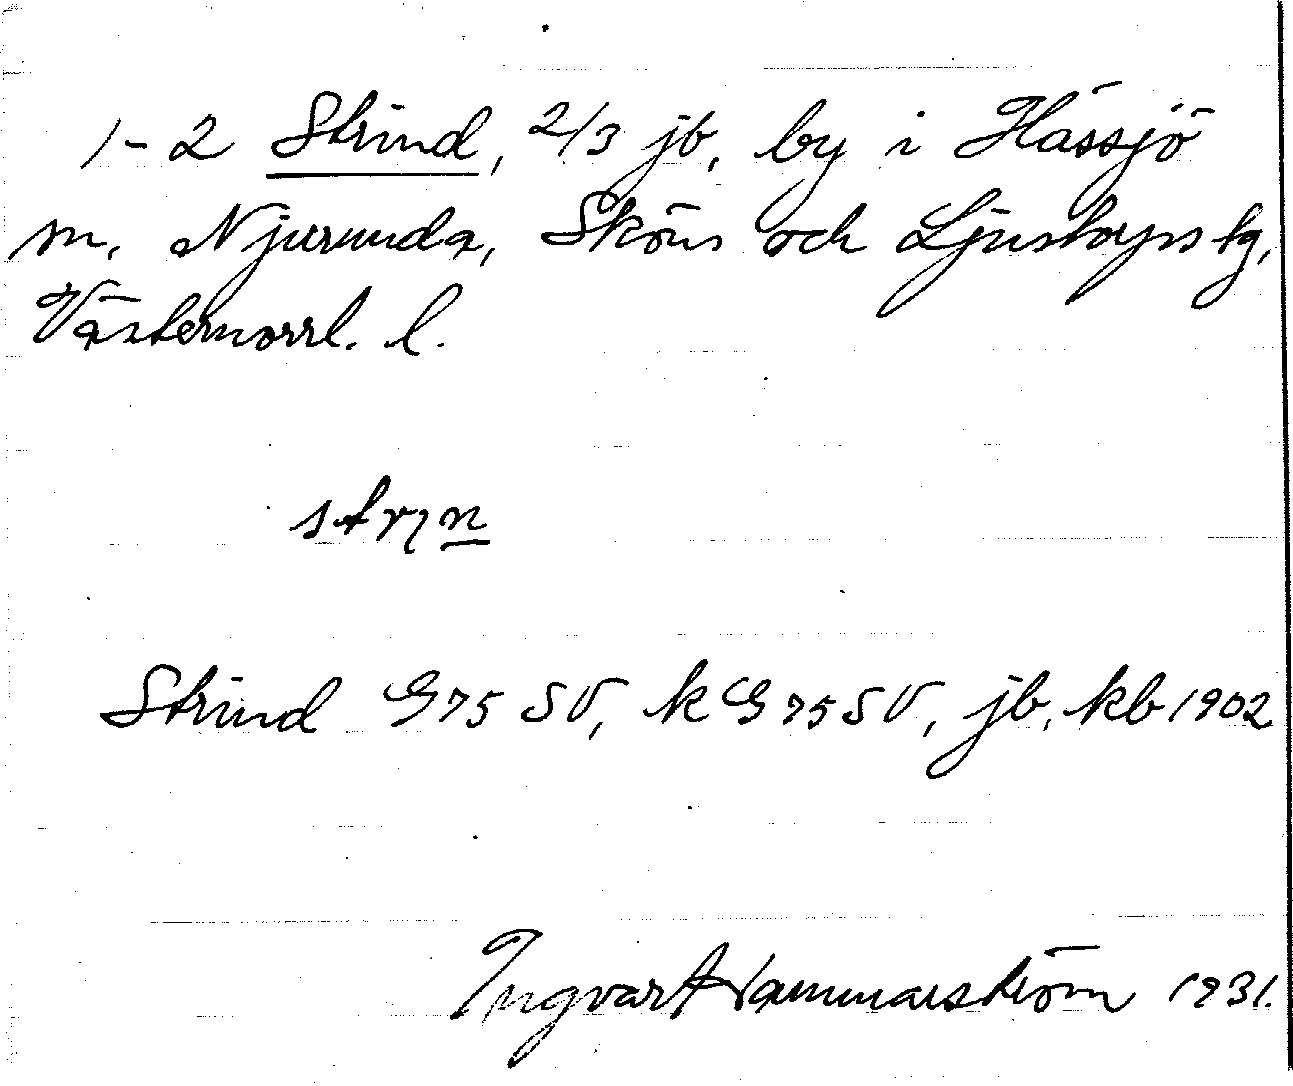 1-2 Strind, 2/3 jb, by i Hässjö
sn, Njurunda, Sköns och Ljustorps tg,
Västernorrl. l.
Strind G75 SV, k G75SV, jb, kb 1902
Ingvar Hammarström 1931.